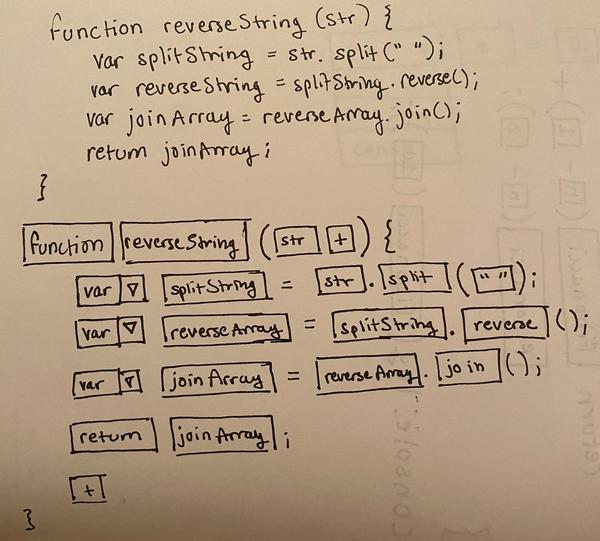 function reverseString (str) {
var splitString = str. split (" ");
var reverseString = splitString. reverse();
var joinArray = reverseArray. join();
return joinArray;
}
function reverseString (str +) {
var ▽ splitString = str . split (" ");
var ▽ reverseArray = splitString . reverse ();
var ▽ joinArray = reverseArray . join ();
return joinArray ;
+
}